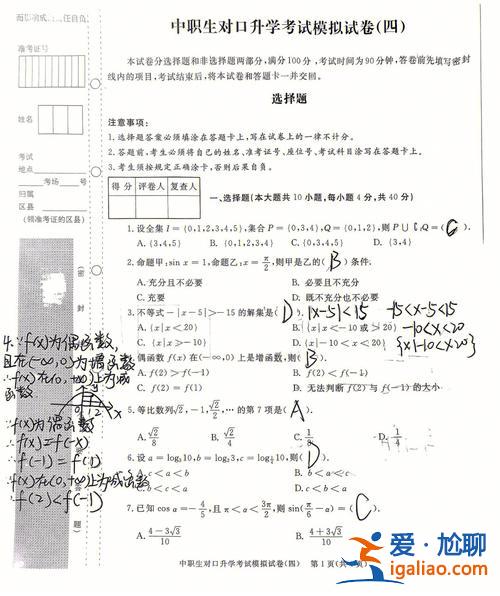 中职生对口升学考试模拟试卷(四)
准考证号
本试卷分选择题和非选择题两部分,满分100分,考试时间为90分钟,答卷前先填写密封
线内的项目,考试结束后,将本试卷和答题卡一并交回。
选择题
姓名
注意事项:
1.选择题答案必须填涂在答题卡上,写在试卷上的一律不计分。
2.答题前,考生必须将自己的姓名、准考证号、座位号、考试科目涂写在答题卡上。
3.考生须按规定正确涂卡,否则后果自负。
考试
地点
考场 号
归属
区县
(领准考证的区县)
得分 评卷人 复查人
一、选择题(本大题共10小题,每小题4分,共40分)
1.设全集I={0,1,2,3,4,5},集合P={0,3,4},Q={0,1,2},则P∪ Q=( C ).
A.{3,4,5} B.{0,1,2,3,4} C.{0,3,4,5} D.{3,4}
2.命题甲:sin x=1,命题乙:x=π/2,则甲是乙的( B )条件.
A.充分且不必要 B.必要且不充分
C.充要 D.既不充分也不必要
3.不等式-|x-5|>-15的解集是( D ). |x-5|<15 -15<x-5<15
A.{x|x<20} B.{x|x<-10或 >20} -10<x<20
C.{x|x>-10} D.{x|-10<x<20} {x|-10<x<20}
4.∵f(x)为偶函数,
且在(-∞,0)为增函数
∴f(x)在(0,+∞)上为减
函数
偶函数f(x)在(-∞,0)上是增函数,则( B ).
A.f(2)>f(-1) B.f(2)<f(-1)
C.f(2)=f(1) D.无法判断f(2)与f(-1)的大小
0 1 2 x
∵f(x)为偶函数
∴f(x)=f(-x)
∴f(-1)=f(1)
∵f(x)在(0,+∞)上为减函数
∴f(2)<f(-1)
5.等比数列√2,-1,√2/2,…的第7项是( A ).
A.√2/8 B.√2/4 C.1/8 D.1/4
6.设a=log₃10,b=log₂3, 则( D ).
A. c<a<b B. b<a<c
b<c<a D.c<b<a
7.已知cos α=-4/5,且π<α<3π/2,则sin(π/6-α)=( C ).
A.(4-3√3)/10 B.(4+3√3)/10
密
封
题
中职生对口升学考试模拟试卷(四) 第1页(共
爱·尬聊
igaliao.com